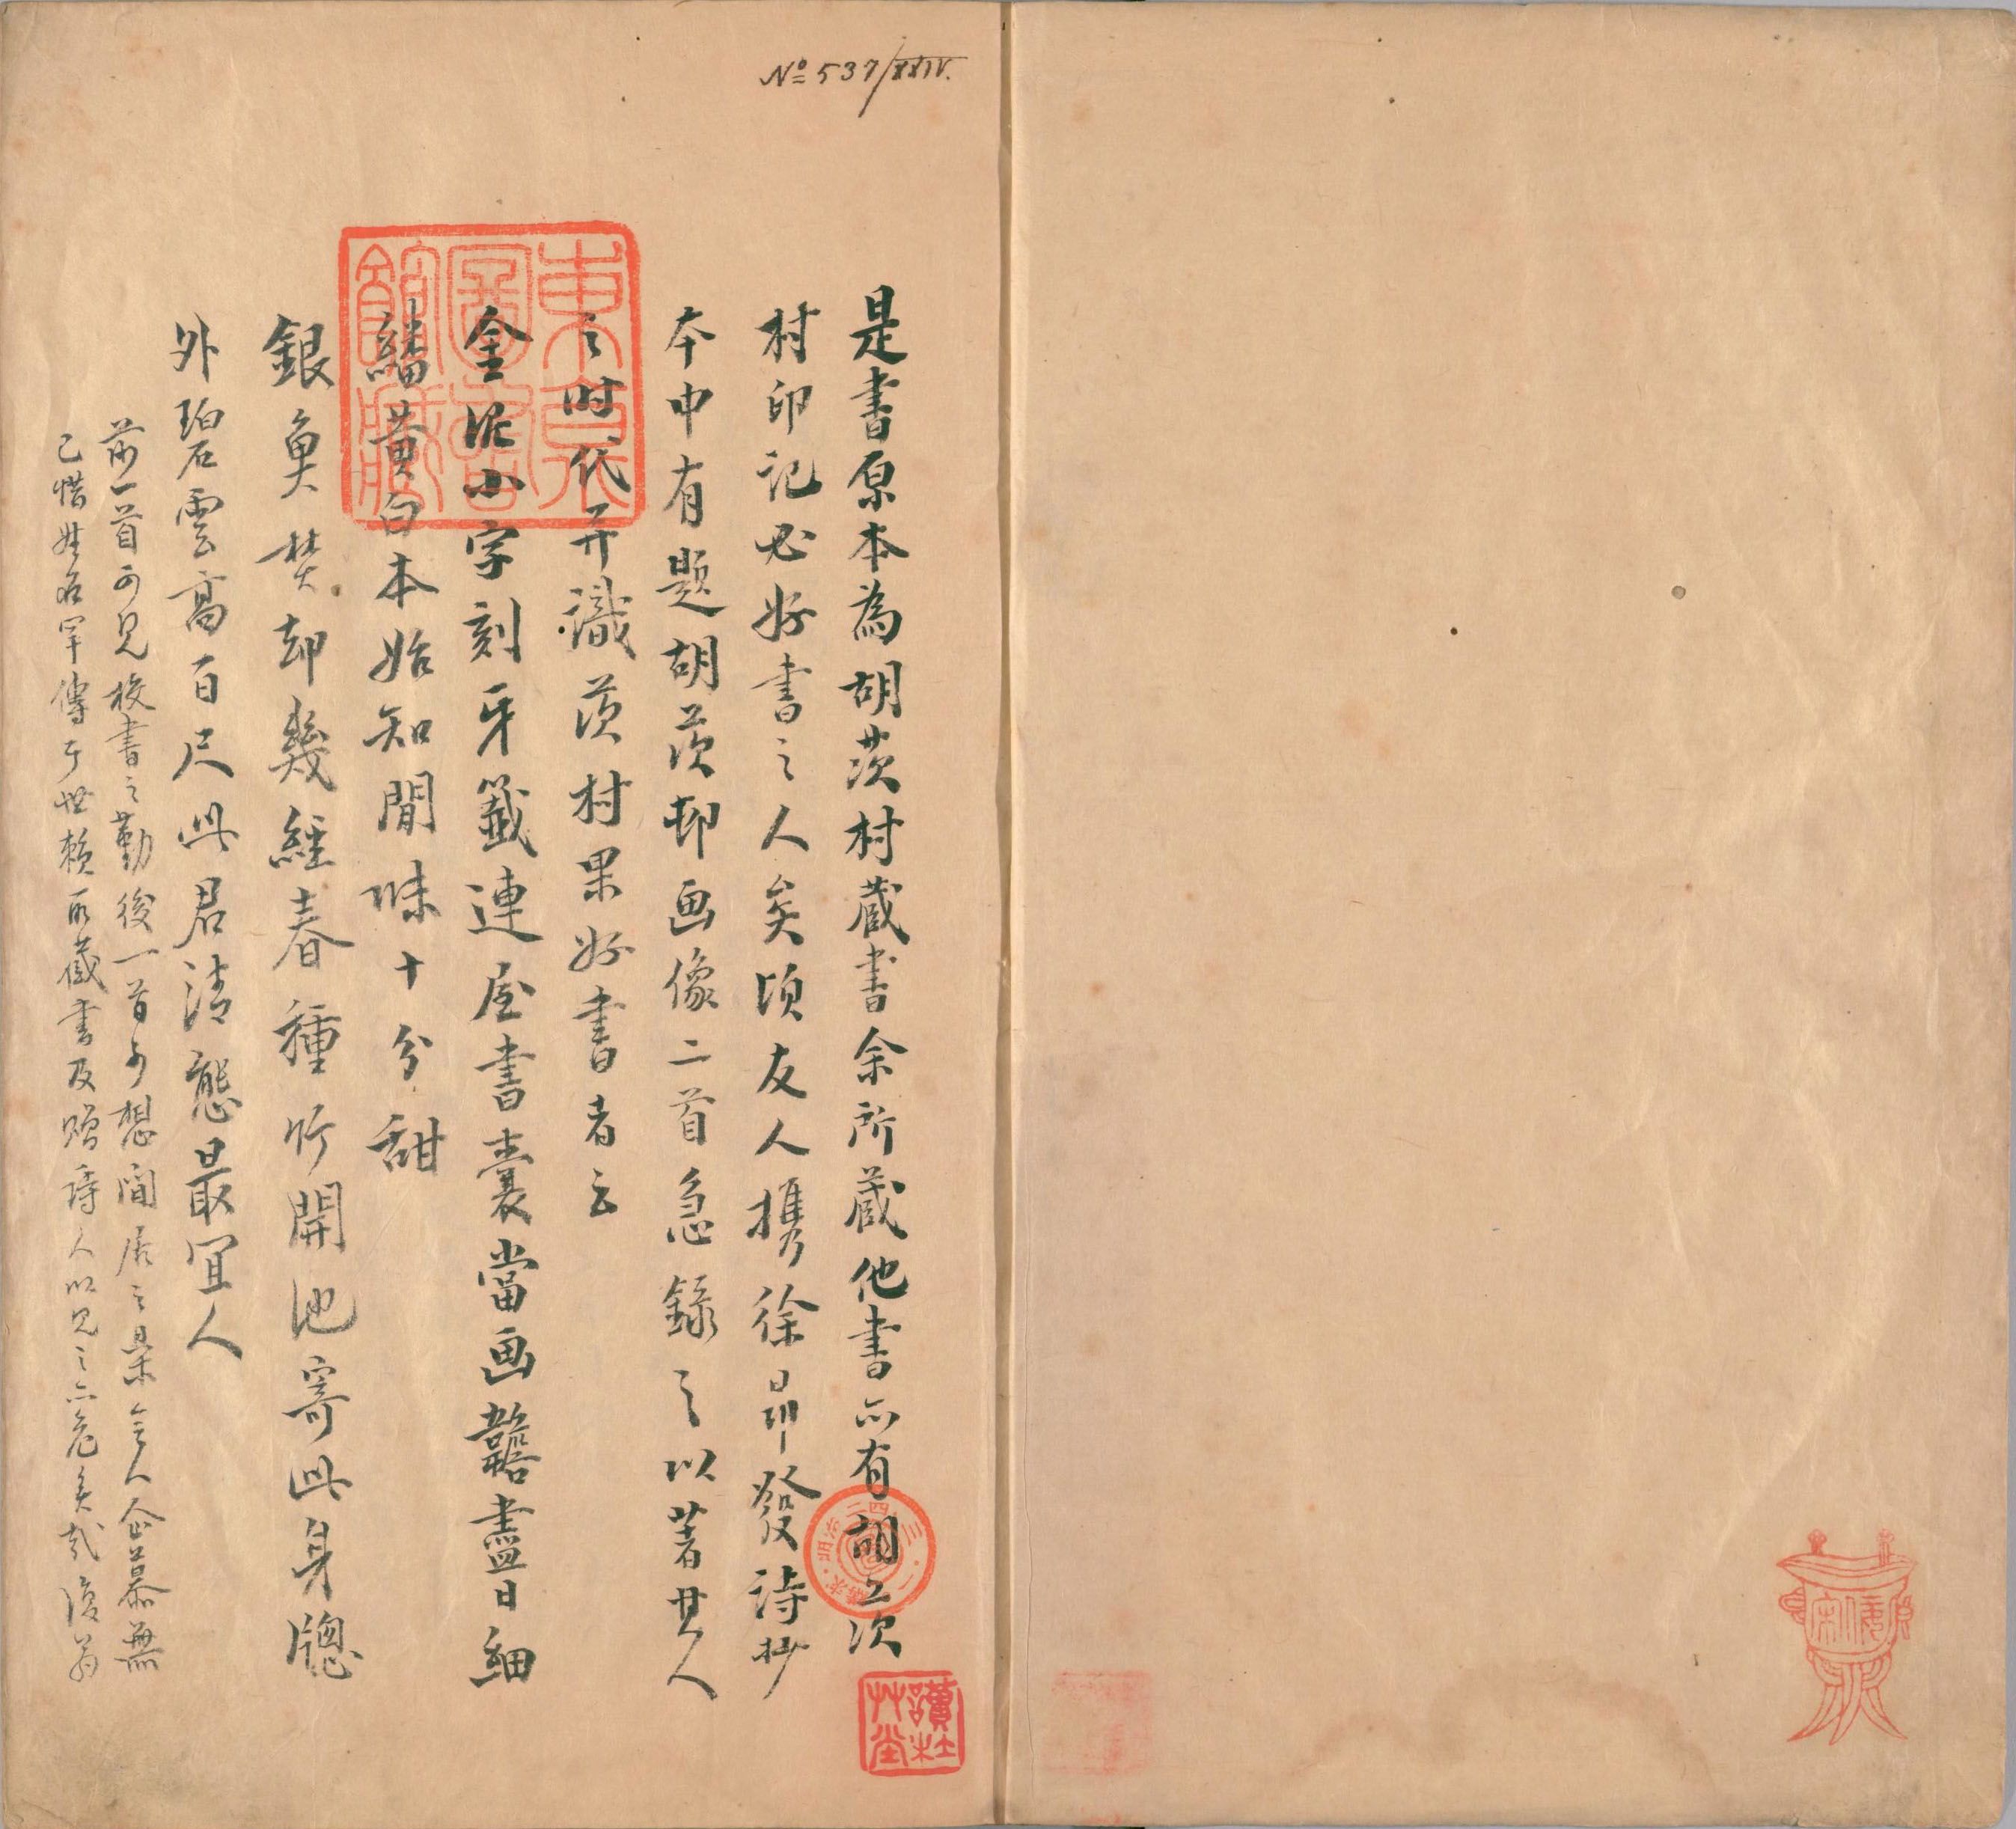 № 537/XXIV.
是書原本為胡茨村蔵書余所蔵他書亦有胡茨
村印記必好書之人矣頃友人携徐昂發詩抄
本中有題胡茨邨画像二首急録之以著其人
之时代并識茨村果好書者云
金泥小字刻牙籤連屋書囊當画簷盡日細
繙黄白本始知閒味十分甜
銀魚焚却幾經春種竹開池寄此身牕
外碧雲高百尺此君清態最宜人
前一首可見校書之勤後一首可想閒居之樂令人企慕無
已惜姓名罕傳于世頼所蔵書及贈詩人以見之亦危矣哉復翁
東京圖書館藏
讀杜艸堂
明治二四